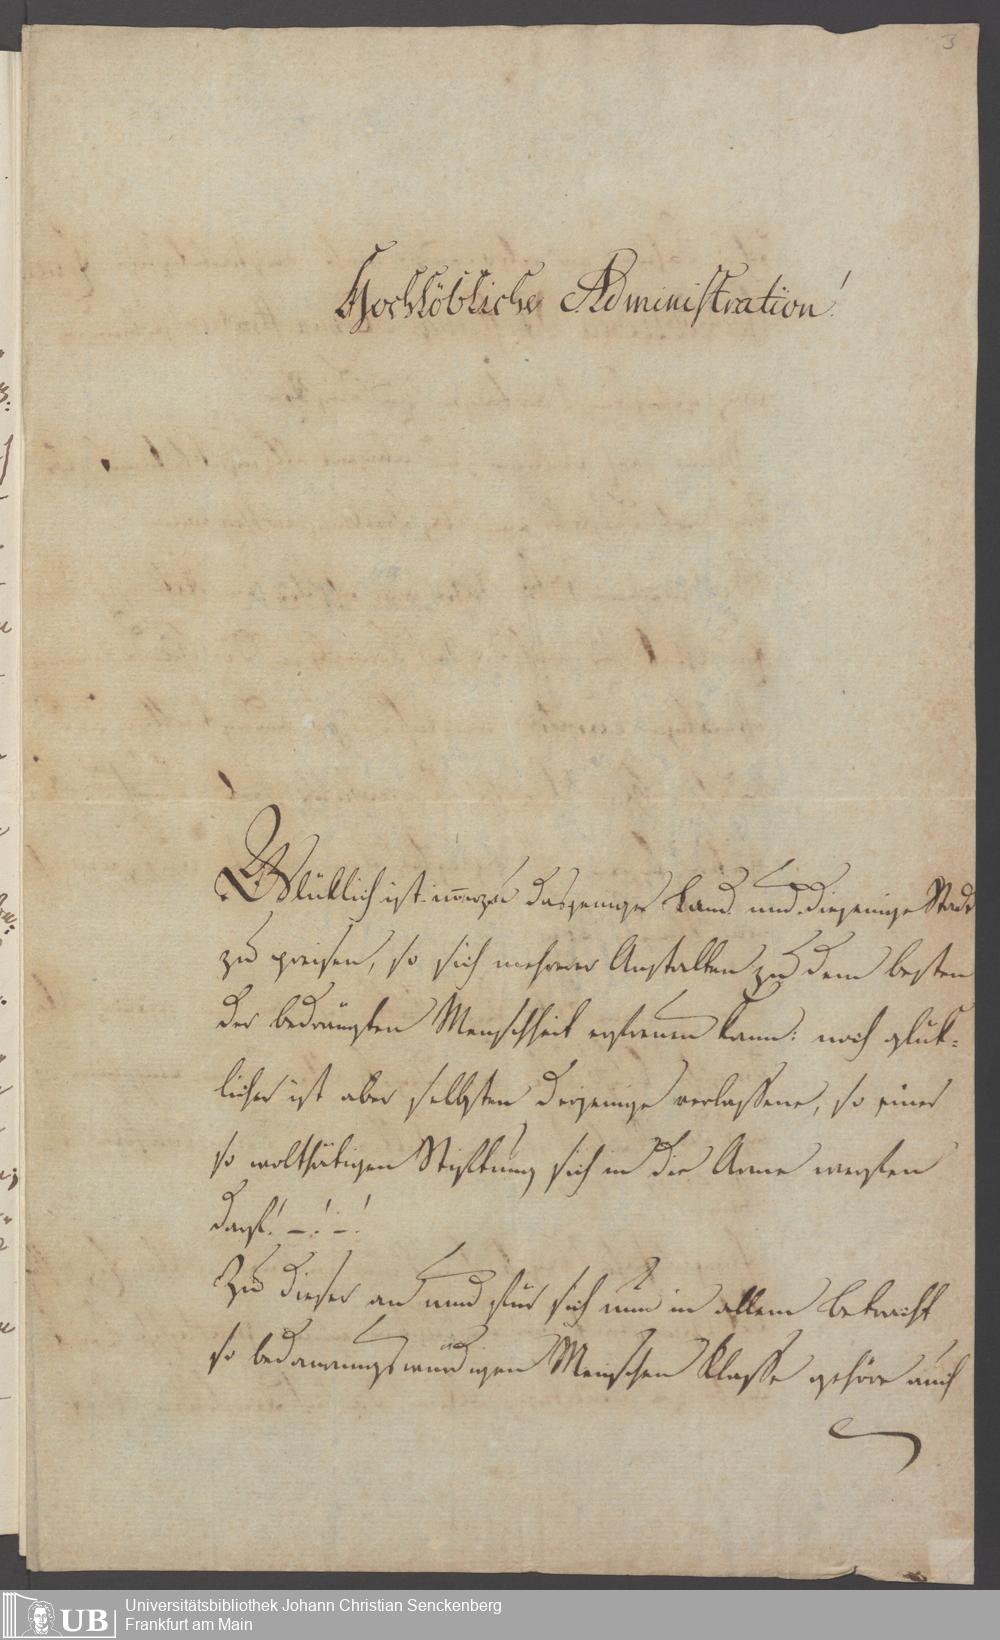 3
Hochlöbliche Administration!
Glüklich ist immerzu dasjenige Land und diejenige Stadt
zu preisen, so sich mehrerer Anstalten zu dem besten
der bedrängten Menschheit erfreuen kann: noch glük-
licher ist aber selbsten derjenige verlassene, so einer
so wolthätigen Stiftung sich in die Arme werfen
darf! –! –!
Zu dieser an und für sich nun in allem betracht
so bedaurungswürdigen Menschen Klasse gehöre auch
UB
Universitätsbibliothek Johann Christian Senckenberg
Frankfurt am Main